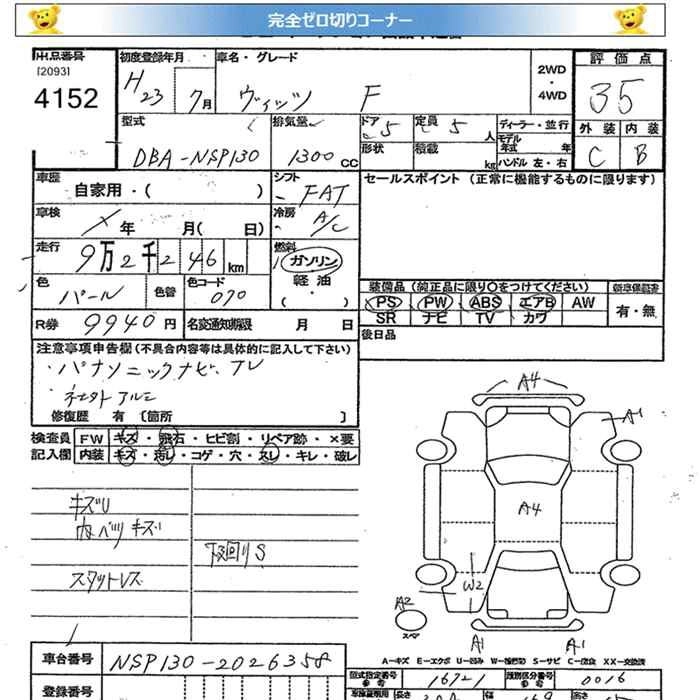 完全ゼロ切りコーナー
出品番号
[2093]
4152
初度登録年月
H23 7月
車名・グレード
ヴィッツ F
2WD
・
4WD
評価点
35
型式
DBA-NSP130
排気量
1300 CC
ドア 5
定員 5 人
形状
積載 kg
ディーラー・並行
モデル年式 年
ハンドル 左・右
外装 内装
C B
車歴
自家用・( )
シフト
FAT
セールスポイント (正常に機能するものに限ります)
車検
年 月( 日)
冷房
A/C
走行
9万2千246km
燃料
ガソリン
軽油
( ・ )
色
パール
色替
色コード
070
装備品 (純正品に限り○をつけてください)
PS PW ABS エアB AW
SR ナビ TV カワ
新車保証書
有・無
R券 9940円
名変通知期限 月 日
後日品
注意事項申告欄 (不具合内容等は具体的に記入して下さい)
・パナソニックナビ、TV
アルミ
修復歴 有 〔箇所 〕
検査員 FW キズ・飛石・ヒビ割・リペア跡・×要
記入欄 内装 キズ・汚レ・コゲ・穴・スレ・キレ・破レ
キズU
内ベツキズ
下回りS
スタットレス
A4
A1
A4
W2
A2
スペア
A1
A1
A-キズ E-エクボ U-凹み W-補修跡 S-サビ C-腐食 XX-交換済
車台番号
NSP130-2026358
型式指定番号
16721
類別区分番号
0016
登録番号
長さ
幅
169
高さ